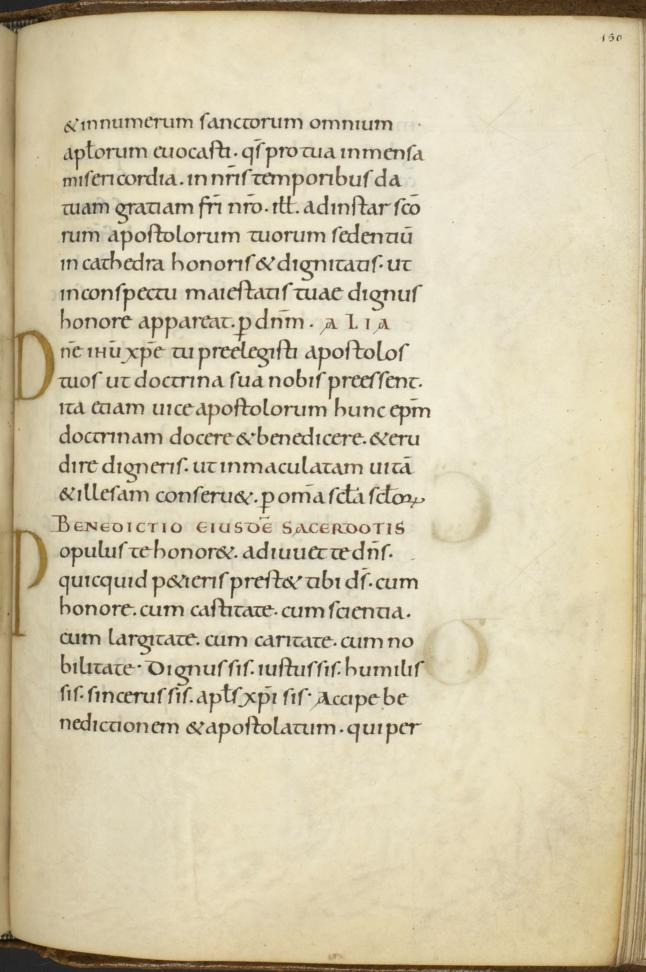 150
& innumerum sanctorum omnium
apłorum euocasti· qs̄ pro tua inmensa
misericordia. in nr̄is temporibus da
tuam gratiam fr̄i nr̄o· iłł. ad instar sc̄o
rum apostolorum tuorum sedentiū
in cathedra honoris & dignitatis· ut
in conspectu maiestatis tuae dignus
honore appareat· p dn̄m· ALIA
Dn̄e ih̄u xp̄e tu preelegisti apostolos
tuos ut doctrina sua nobis preessent.
ita etiam uice apostolorum hunc ep̄m
doctrinam docere & benedicere. & eru
dire digneris. ut inmaculatam uitā
& illesam conseru&. p om̄a scła scłoꝝ
BENEDICTIO EIUSDĒ SACERDOTIS
Populus te honor&. adiuuet te dn̄s.
quicquid p&ieris prest& tibi ds̄. cum
honore. cum castitate. cum scientia.
cum largitate. cum caritate. cum no
bilitate· Dignus sis. iustus sis. humilis
sis. sincerus sis. apłs xp̄i sis· Accipe be
nedictionem & apostolatum· qui per